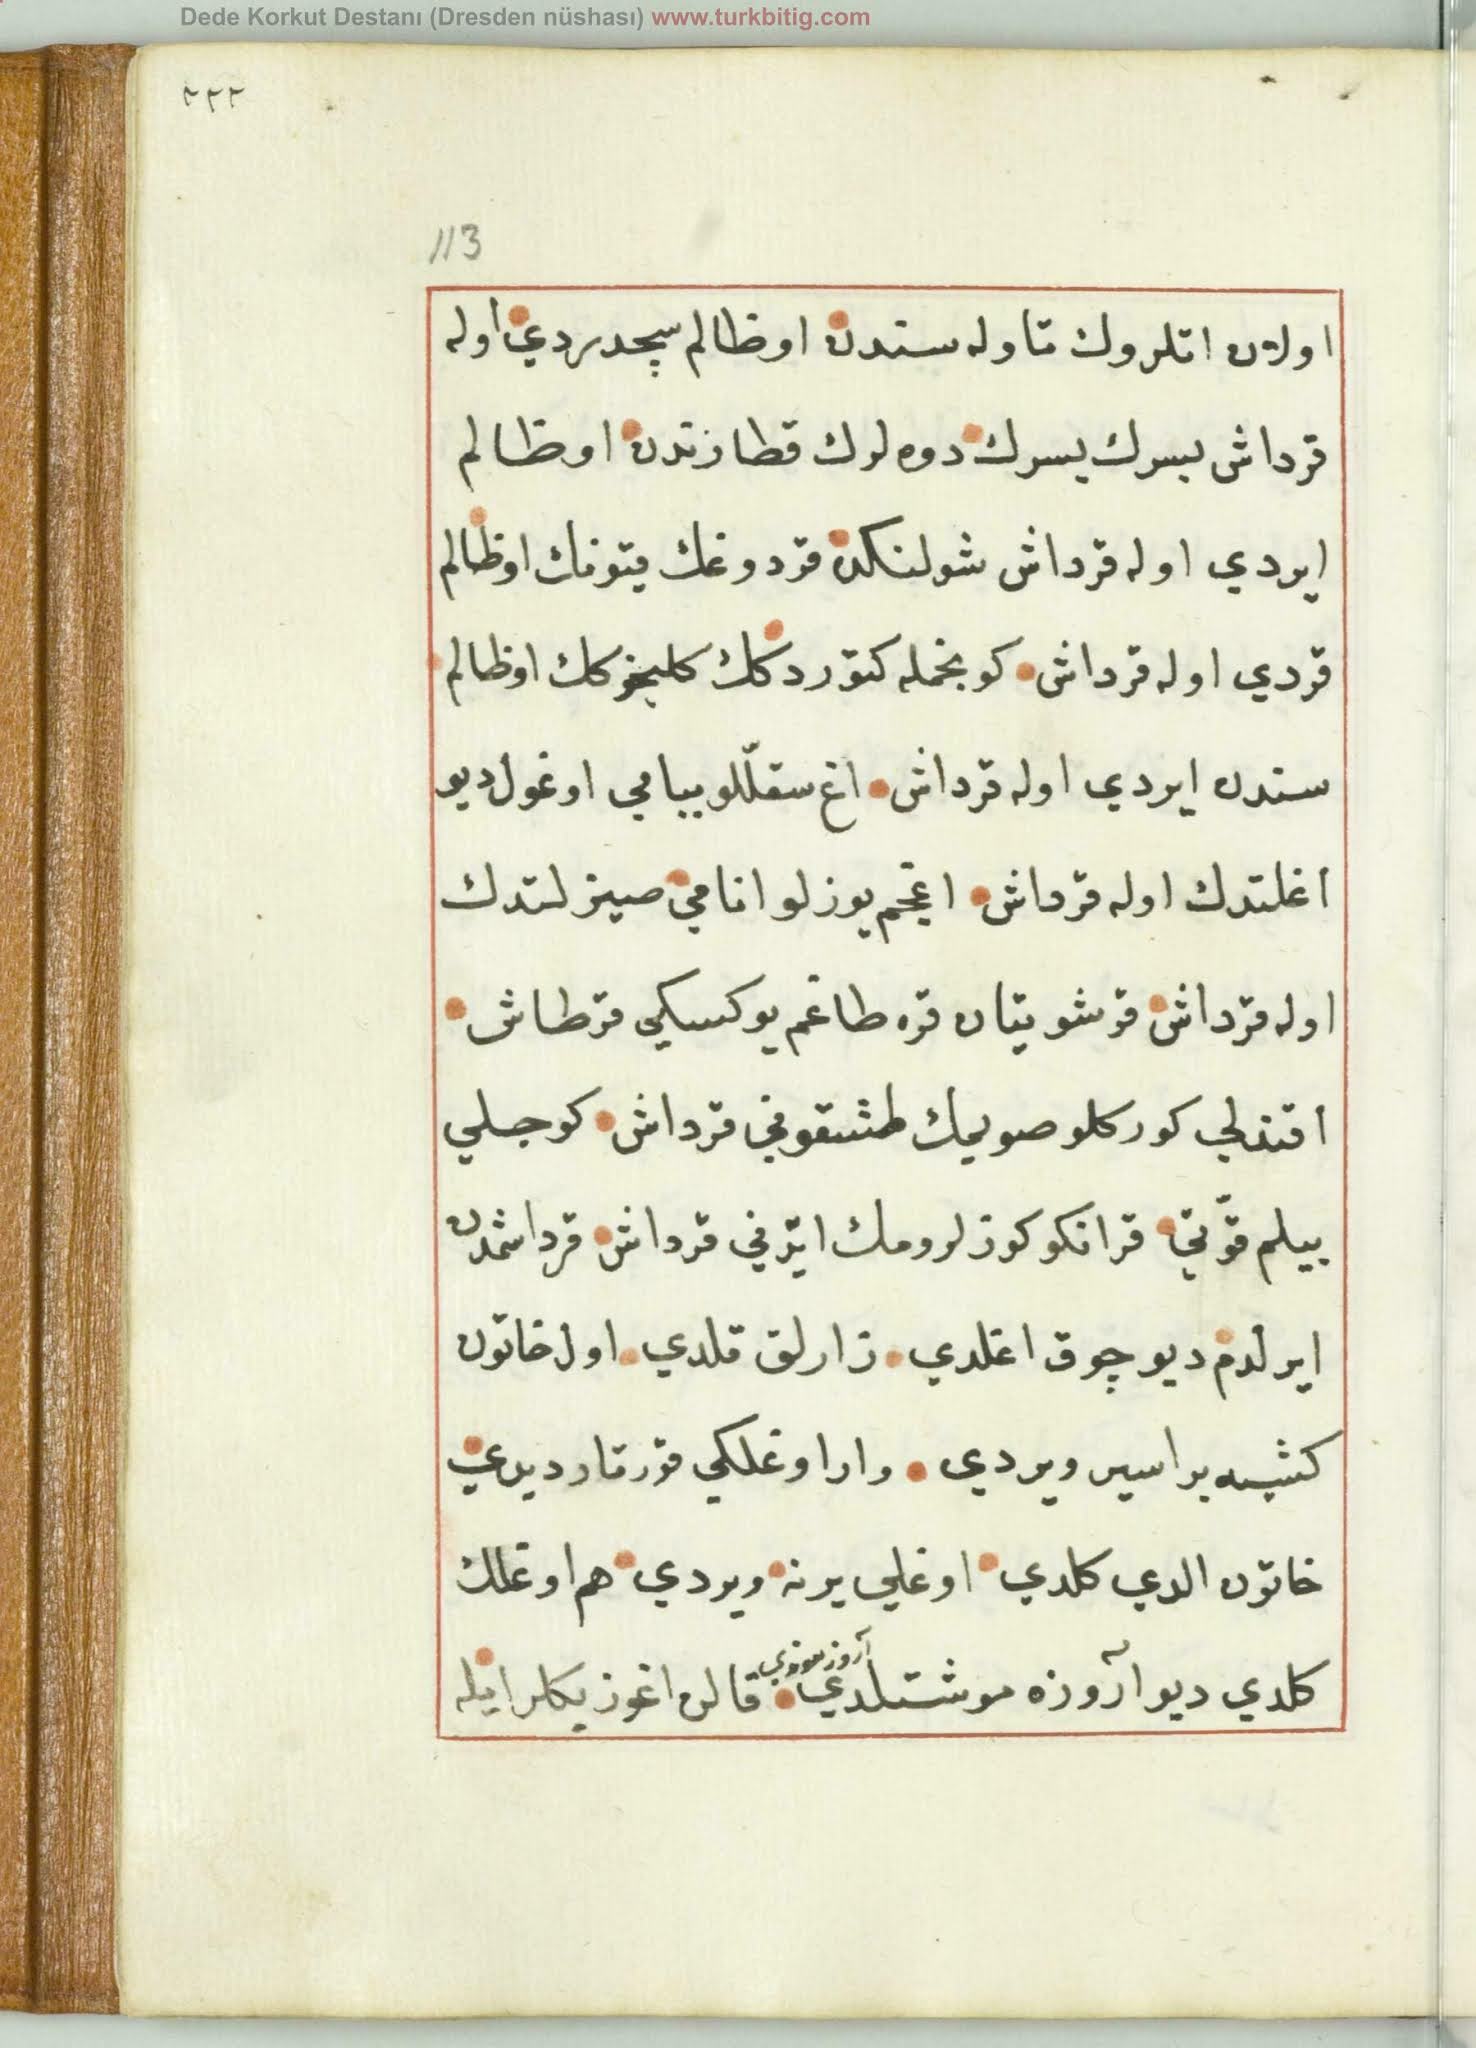 Dede Korkut Destanı (Dresden nüshası) www.turkbitig.com
٢٢٢
113
اولان اتلروك تاوله سندن اوظالم سچدردي اوله
قرداش بسرك بسرك دوه لوك قطارندن اوظالم
ايردي اوله قرداش شولنكدن قردوغك قيتونك اوظالم
قردي اوله قرداش كونجمله كتوردكك كلنجوكك اوظالم
سندن ايردي اوله قرداش اغ سقللو ببامي اوغول ديو
اغلتدك اوله قرداش اغجم يوزلو انامي صيزلتدك
اوله قرداش قرشو يتان قره طاغم يوكسكي قرطاش
اقندلي كوركلو صويمك طشقوني قرداش كوجلي
بيلم قوتي قرانكو كوزلرومك ايدني قرداش قرداشمدن
ايرلدم ديو چوق اغلدي زارلق قلدي اول خاتون
كشيسه براسير ويردي وار اوغلكي قورتار ديدي
خاتون الدي كلدي اوغلي يرنه ويردي هم اوغلك
كلدي ديو آروزه موشتلدي قالن اغوز بكلر ايله